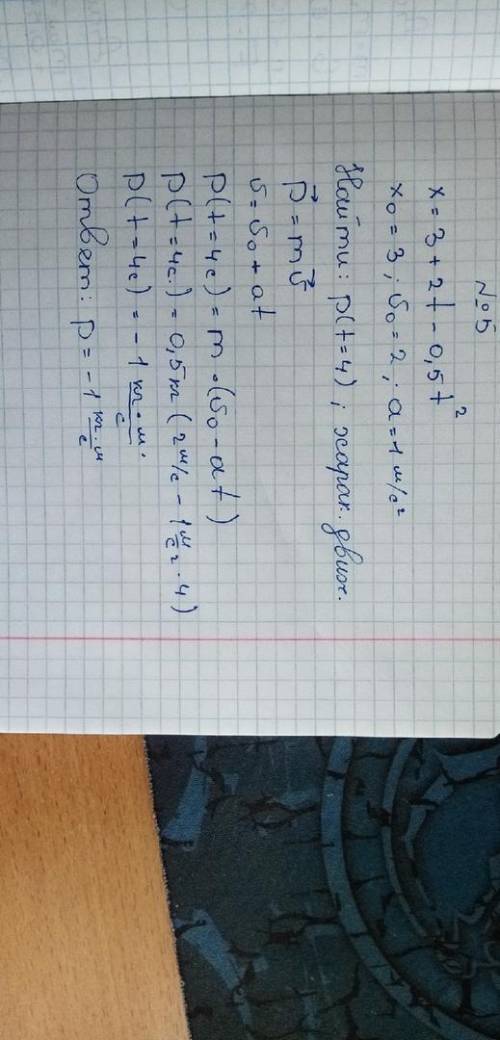 №5
x = 3 + 2t - 0,5t²
x₀ = 3 ; υ₀ = 2 ; a = 1 м/с²
Найти: p(t=4) ; харак. движ.
p⃗ = mυ⃗
υ = υ₀ + at
p(t=4c) = m · (υ₀ - at)
p(t=4c.) = 0,5кг (2м/с - 1м/с² · 4)
p(t=4c) = -1 кг·м/с.
Ответ: p = -1 кг·м/с